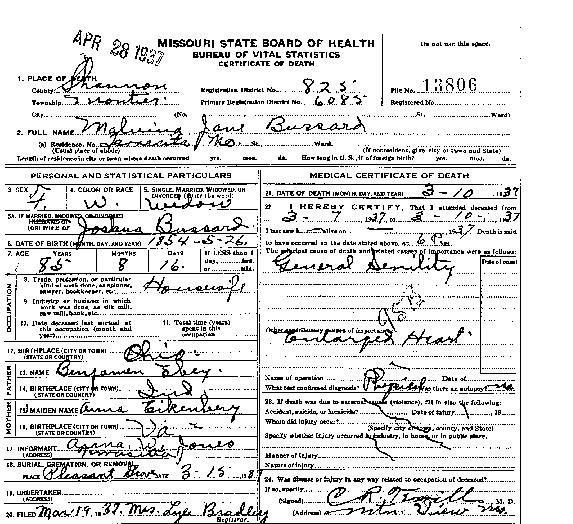 APR 28 1937
MISSOURI STATE BOARD OF HEALTH
BUREAU OF VITAL STATISTICS
CERTIFICATE OF DEATH
Do not use this space.
1. PLACE OF DEATH
County Shannon Registration District No. 825 File No. 13806
Township Primary Registration District No. 6085 Registered No.
City (No. St. Ward)
2. FULL NAME Jane Bussard
(a) Residence. No. Mo St. Ward.
(Usual place of abode) (If nonresident, give city or town and State)
Length of residence in city or town where death occurred yrs. mos. ds. How long in U. S., if of foreign birth? yrs. mos. ds.
PERSONAL AND STATISTICAL PARTICULARS
3. SEX F. 4. COLOR OR RACE W. 5. SINGLE, MARRIED, WIDOWED, OR DIVORCED Widow
5A. IF MARRIED, WIDOWED, OR DIVORCED
(OR) WIFE OF Joshua Bussard
6. DATE OF BIRTH (MONTH, DAY, AND YEAR) 1854-5-26
7. AGE YEARS MONTHS DAYS
85 8 16
OCCUPATION
8. Trade, profession, or particular kind of work done, as spinner, sawyer, bookkeeper, etc. Housewife
9. Industry or business in which work was done, as silk mill, saw mill, bank, etc.
10. Date deceased last worked at this occupation (month and year) 11. Total time (years) spent in this occupation
12. BIRTHPLACE (CITY OR TOWN) Ohio
(STATE OR COUNTRY)
FATHER
13. NAME Benjamen Ebey
14. BIRTHPLACE (CITY OR TOWN) Ind
(STATE OR COUNTRY)
MOTHER
15. MAIDEN NAME Anna
16. BIRTHPLACE (CITY OR TOWN) Va
(STATE OR COUNTRY)
17. INFORMANT Anna Jones
(ADDRESS)
18. BURIAL, CREMATION, OR REMOVAL
PLACE Pleasant DATE 3-15-1937
19. UNDERTAKER
(ADDRESS)
20. FILED Mar 19, 1937. Mrs. Lyle Bradley
Registrar.
MEDICAL CERTIFICATE OF DEATH
21. DATE OF DEATH (MONTH, DAY, AND YEAR) 3-10-1937
22. I HEREBY CERTIFY, That I attended deceased from
3-7 1937, to 3-10-1937
I last saw alive on 1937 Death is said
to have occurred on the date stated above, at 6 P m.
The principal cause of death and related causes of importance were as follows:
Date of onset
General Senility
Other contributory causes of importance:
Enlarged Heart
Name of operation Date of
What test confirmed diagnosis? Was there an autopsy? no
23. If death was due to external causes (violence), fill in also the following:
Accident, suicide, or homicide? Date of injury 19
Where did injury occur?
(Specify city or town, county, and State)
Specify whether injury occurred in industry, in home, or in public place.
Manner of injury
Nature of injury
24. Was disease or injury in any way related to occupation of deceased?
If so, specify
(Signed) C. R. M. D.
(Address) Mtn. View Mo